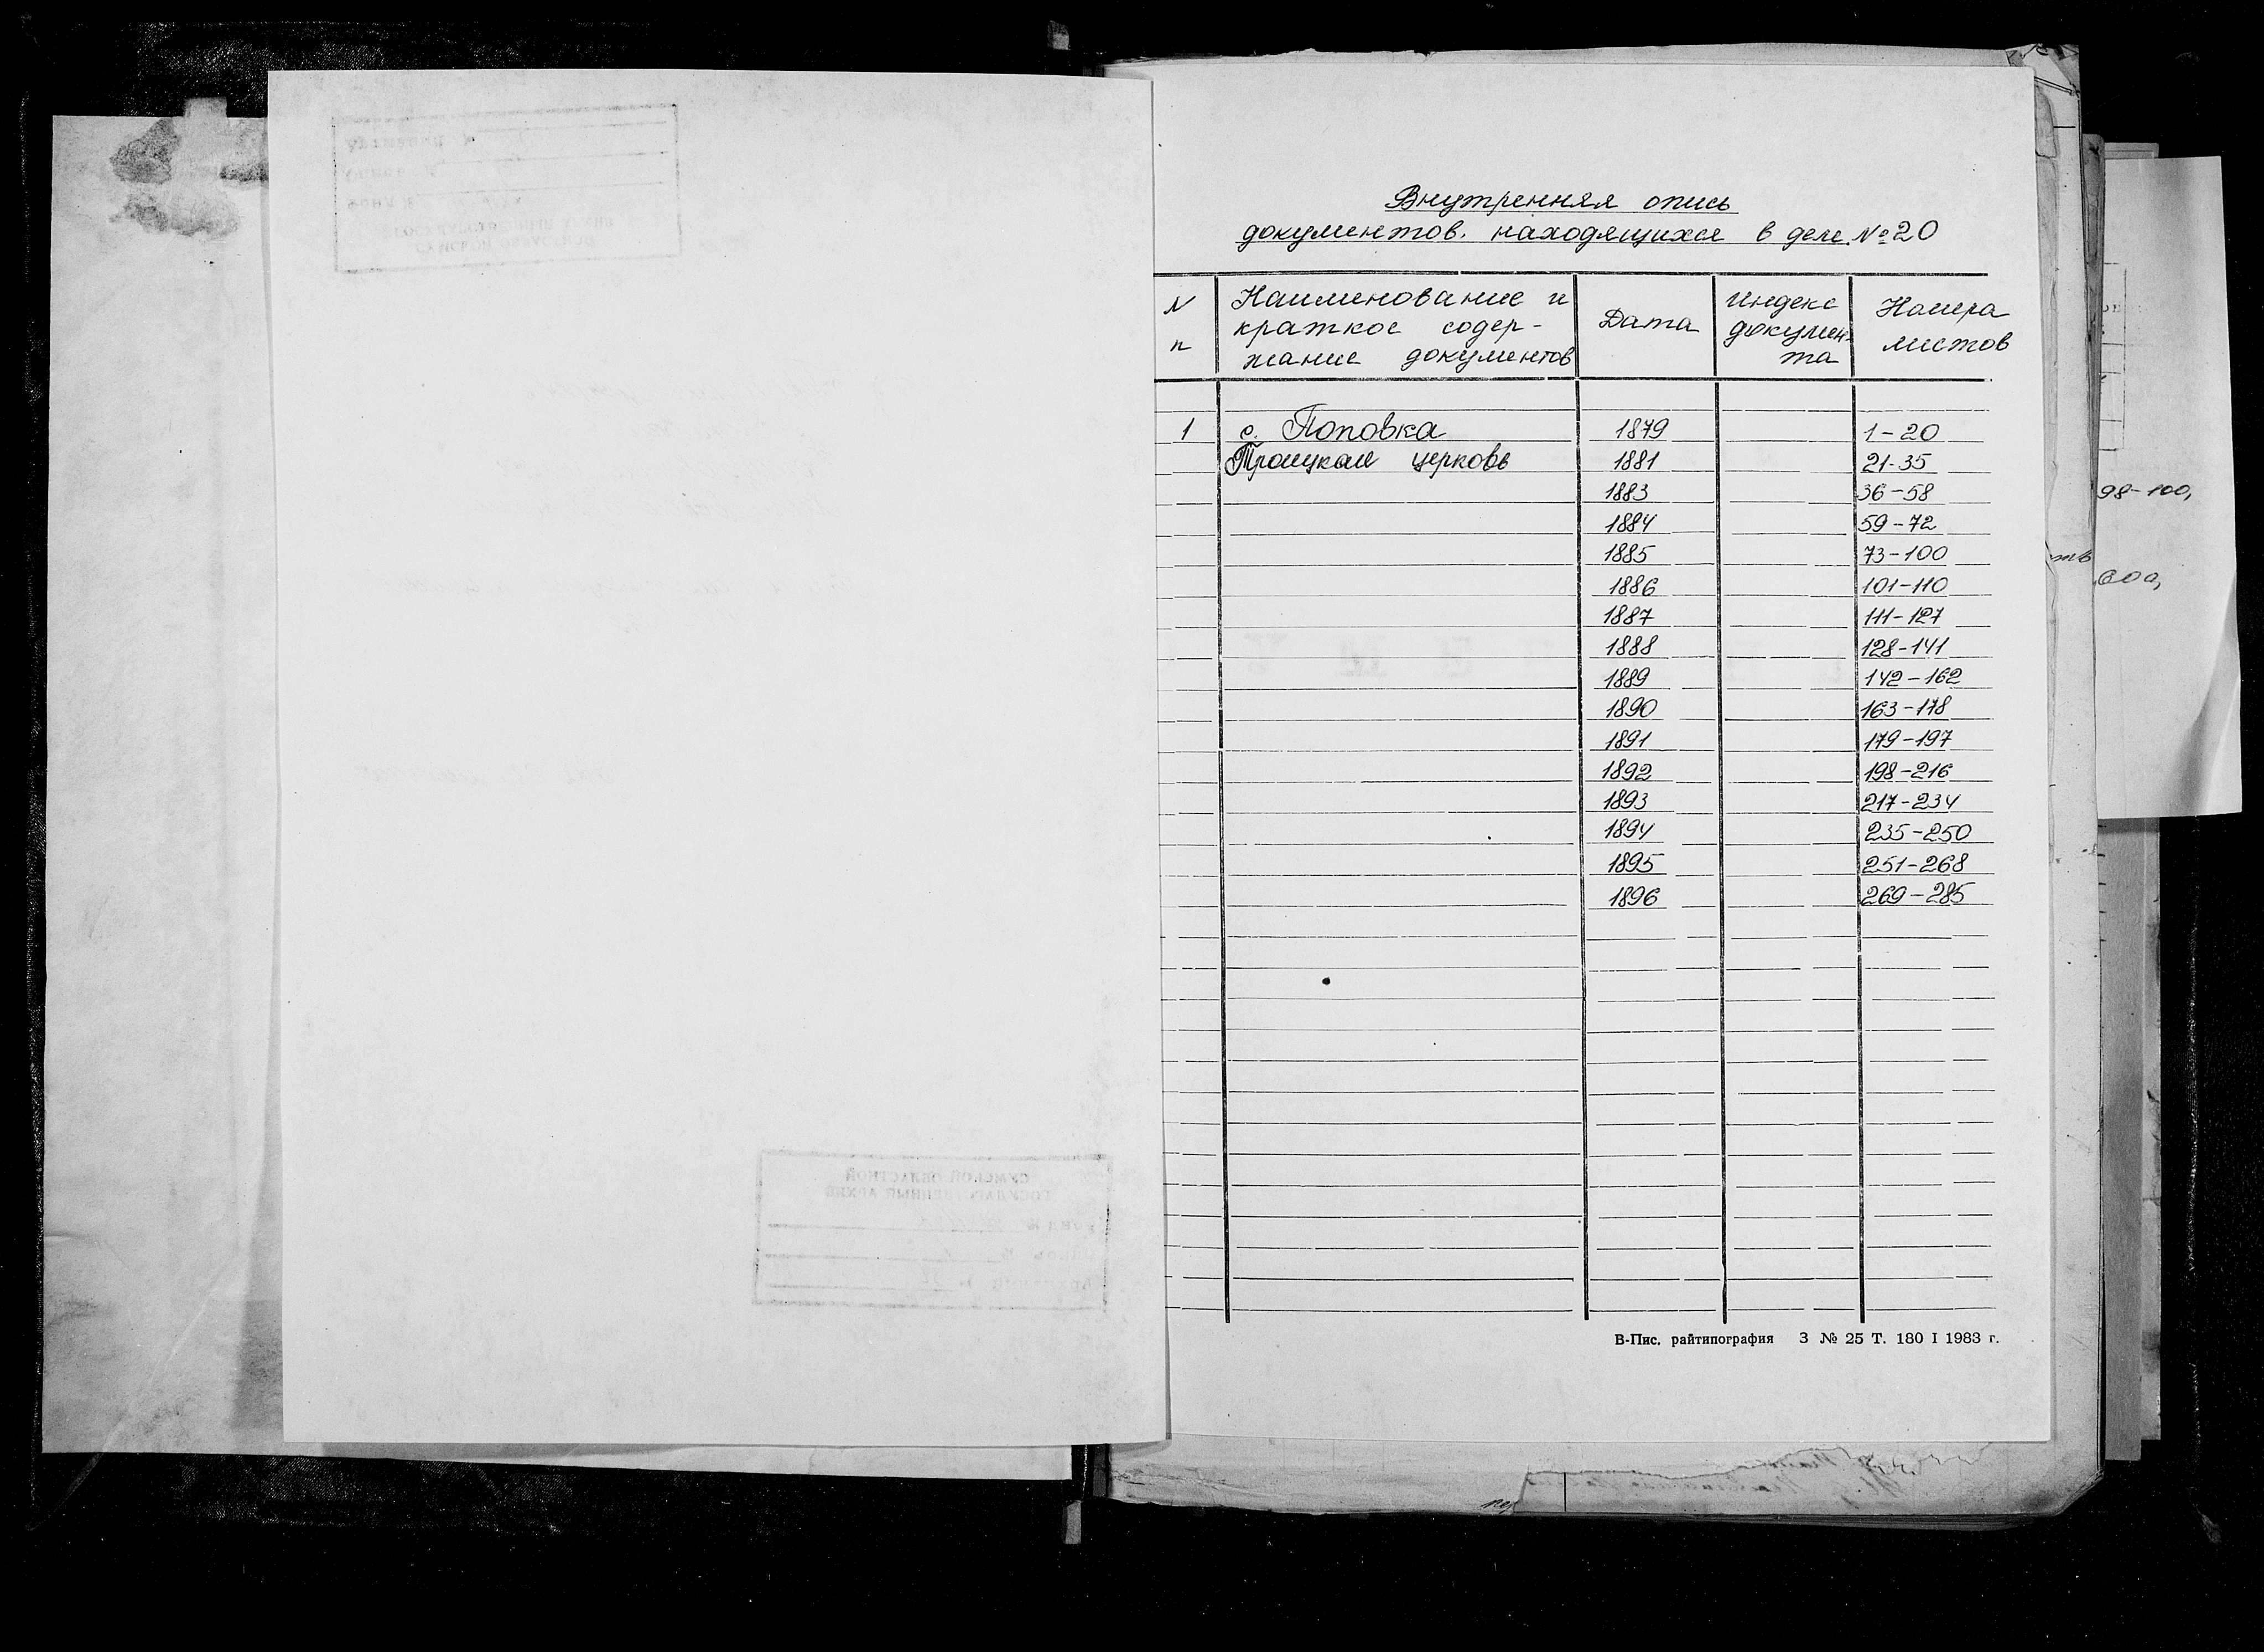 Внутренняя опись
документов, находящихся в деле № 20
N п
Наименование и краткое содер-
жание документов
Дата
Индекс докумен-
та
Номера листов
1 с. Поповка 1879 1-20
Троицкая церковь 1881 21-35
1883 36-58
1884 59-72
1885 73-100
1886 101-110
1887 111-127
1888 128-141
1889 142-162
1890 163-178
1891 179-197
1892 198-216
1893 217-234
1894 235-250
1895 251-268
1896 269-285
В-Пис. райтипография З № 25 Т. 180 I 1983 г.
98-100,
СУМСКОЙ ОБЛАСТНОЙ
ГОСУДАРСТВЕННЫЙ АРХИВ